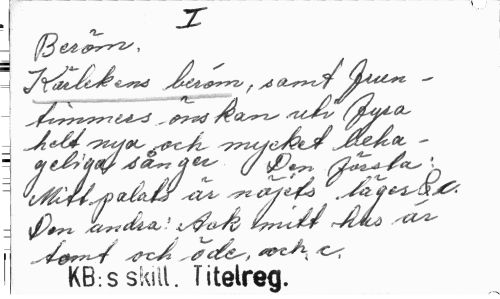 I
Beröm.
Kärlekens beröm, samt Frun-
timmers önskan uti fyra
helt nya och mycket beha-
geliga sånger. Den första:
Mitt palats är nöjets läger &c.
Den andra: Ack mitt hus är
tomt och öde, och, c.
KB:s skill. Titelreg.